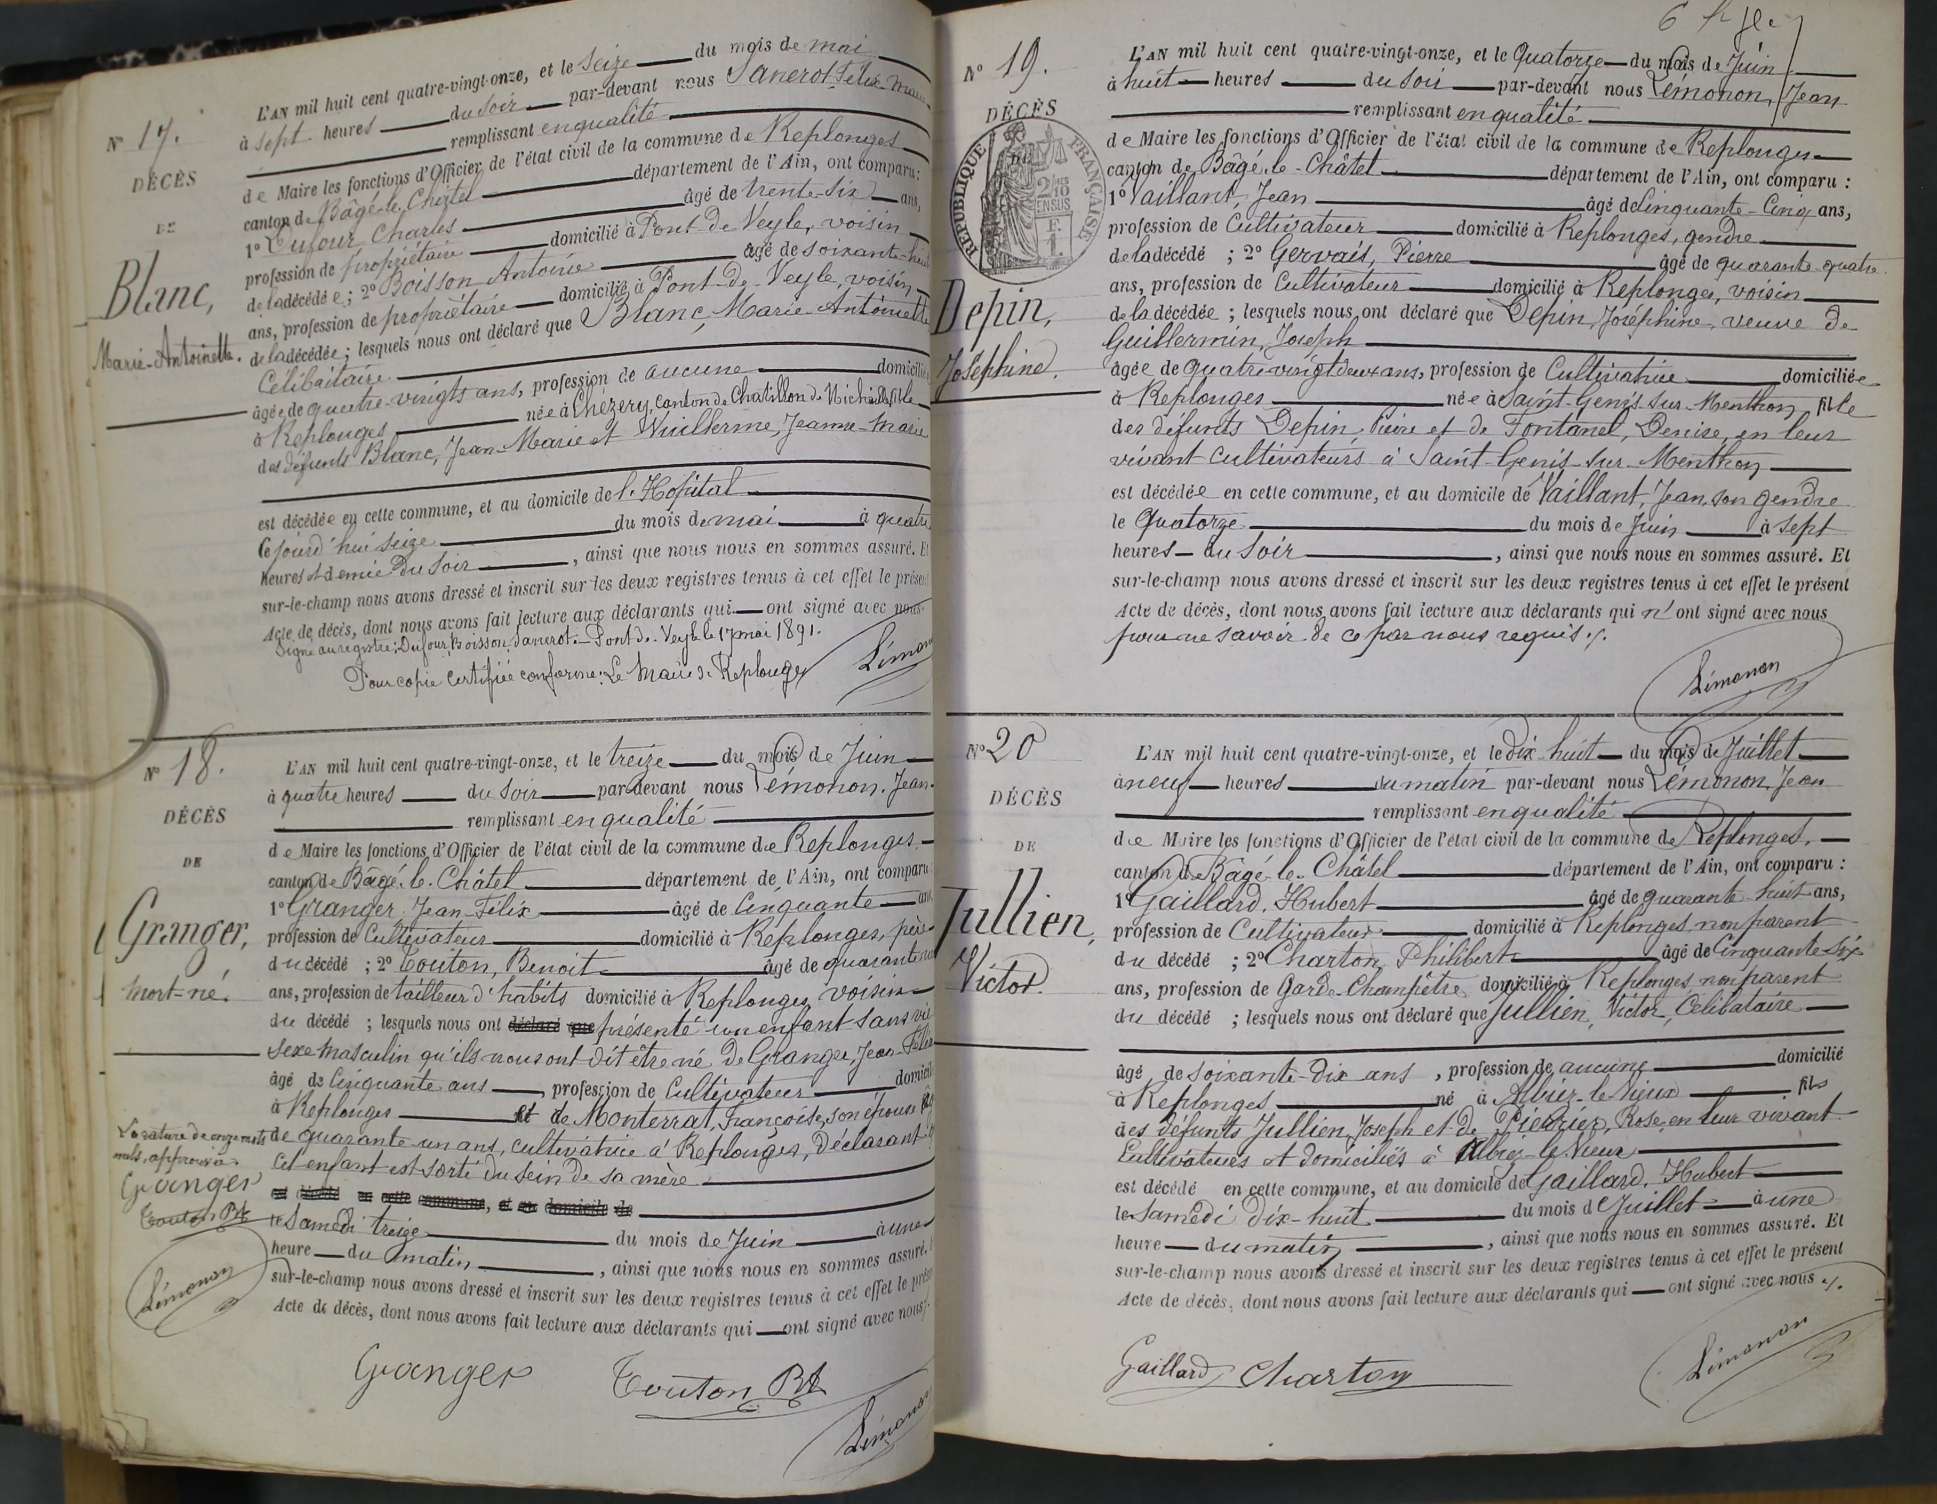 N° 17.
DÉCÈS
DE
Blanc,
Marie-Antoinette.
L'AN mil huit cent quatre-vingt-onze, et le seize du mois de mai
à sept heures du soir par-devant nous Sanerot, Félix-
remplissant en qualité
de Maire les fonctions d'Officier de l'état civil de la commune de Replonges
canton de Bâgé-le-Châtel département de l'Ain, ont comparu :
1° Dufour, Charles âgé de trente-six ans,
profession de propriétaire domicilié à Pont-de-Veyle, voisin
de la décédée ; 2° Boisson Antoine âgé de soixante-
ans, profession de propriétaire domicilié à Pont-de-Veyle, voisin
de la décédée ; lesquels nous ont déclaré que Blanc, Marie-Antoinette
Célibataire
âgée de quatre-vingts ans, profession de aucune domiciliée
à Replonges née à Chézery, canton de Chatillon de Michaille fille
des défunts Blanc, Jean-Marie et Vuillerme, Jeanne-Marie
est décédée en cette commune, et au domicile de l'Hopital
ce jourd'hui seize du mois de mai à quatre
heures et demie du soir , ainsi que nous nous en sommes assuré. Et
sur-le-champ nous avons dressé et inscrit sur les deux registres tenus à cet effet le présent
Acte de décès, dont nous avons fait lecture aux déclarants qui ont signé avec nous
Signé au registre : Dufour, Boisson, Sanerot. Pont-de-Veyle le 17 mai 1891.
Pour copie certifiée conforme : Le Maire de Replonges
Lémonon
N° 18.
DÉCÈS
DE
Granger,
mort-né.
L'AN mil huit cent quatre-vingt-onze, et le treize du mois de Juin
à quatre heures du soir par-devant nous Lémonon, Jean
remplissant en qualité
de Maire les fonctions d'Officier de l'état civil de la commune de Replonges
canton de Bâgé-le-Châtel département de l'Ain, ont comparu
1° Granger, Jean-Félix âgé de Cinquante ans
profession de Cultivateur domicilié à Replonges, père
du décédé ; 2° Touton, Benoit âgé de quarante
ans, profession de tailleur d'habits domicilié à Replonges, voisin
du décédé ; lesquels nous ont déclaré que présenté un enfant sans vie
sexe masculin qu'ils nous ont dit être né de Granger, Jean-Félix
âgé de Cinquante ans , profession de Cultivateur domicilié
à Replonges et de Monterrat, Françoise, son épouse
de quarante-un ans, cultivatrice à Replonges, Déclarant
Cet enfant est sorti du sein de sa mère
est décédé en cette commune, et au domicile de
le Samedi treize du mois de Juin à une
heure du matin , ainsi que nous nous en sommes assuré.
sur-le-champ nous avons dressé et inscrit sur les deux registres tenus à cet effet le présent
Acte de décès, dont nous avons fait lecture aux déclarants qui ont signé avec nous
La rature de onze mots
nuls, approuvée
Granger
Touton Bt
Lémonon
Granger Touton Bt
Lémonon
N° 19.
DÉCÈS
RÉPUBLIQUE FRANÇAISE
2/10 EN SUS
F. 1.
Depin,
Joséphine.
L'AN mil huit cent quatre-vingt-onze, et le Quatorze du mois de Juin
à huit heures du soir par-devant nous Lémonon, Jean
remplissant en qualité
de Maire les fonctions d'Officier de l'état civil de la commune de Replonges
canton de Bâgé-le-Châtel département de l'Ain, ont comparu :
1° Vaillant, Jean âgé de Cinquante-Cinq ans,
profession de Cultivateur domicilié à Replonges, gendre
de la décédé ; 2° Gervais, Pierre âgé de quarante-quatre
ans, profession de Cultivateur domicilié à Replonges, voisin
de la décédée ; lesquels nous ont déclaré que Depin, Joséphine, veuve de
Guillermin, Joseph
âgée de quatre-vingt deux ans, profession de Cultivatrice domiciliée
à Replonges née à Saint-Genis-sur-Menthon fille
des défunts Depin, Pierre et de Fontanel, Denise, en leur
vivant Cultivateurs à Saint-Genis-sur-Menthon
est décédée en cette commune, et au domicile de Vaillant, Jean, son gendre
le Quatorze du mois de Juin à sept
heures du soir , ainsi que nous nous en sommes assuré. Et
sur-le-champ nous avons dressé et inscrit sur les deux registres tenus à cet effet le présent
Acte de décès, dont nous avons fait lecture aux déclarants qui n'ont signé avec nous
pour ne savoir de ce par nous requis ./.
Lémonon
N° 20
DÉCÈS
DE
Jullien,
Victor.
L'AN mil huit cent quatre-vingt-onze, et le dix-huit du mois de Juillet
à neuf heures du matin par-devant nous Lémonon, Jean
remplissant en qualité
de Maire les fonctions d'Officier de l'état civil de la commune de Replonges.
canton de Bâgé-le-Châtel département de l'Ain, ont comparu :
1° Gaillard, Hubert âgé de quarante-huit ans,
profession de Cultivateur domicilié à Replonges non parent
du décédé ; 2° Charton, Philibert âgé de Cinquante-six
ans, profession de Garde-Champêtre domicilié à Replonges, non parent
du décédé ; lesquels nous ont déclaré que Jullien, Victor, Célibataire
âgé de soixante-dix ans , profession de aucune domicilié
à Replonges né à Albiez-le-vieux fils
des défunts Jullien, Joseph et de Rose, en leur vivant
Cultivateurs et domiciliés à Albiez-le-Vieux
est décédé en cette commune, et au domicile de Gaillard, Hubert
le Samedi dix-huit du mois d Juillet à une
heure du matin , ainsi que nous nous en sommes assuré. Et
sur-le-champ nous avons dressé et inscrit sur les deux registres tenus à cet effet le présent
Acte de décès, dont nous avons fait lecture aux déclarants qui ont signé avec nous ./.
Gaillard Charton
Lémonon